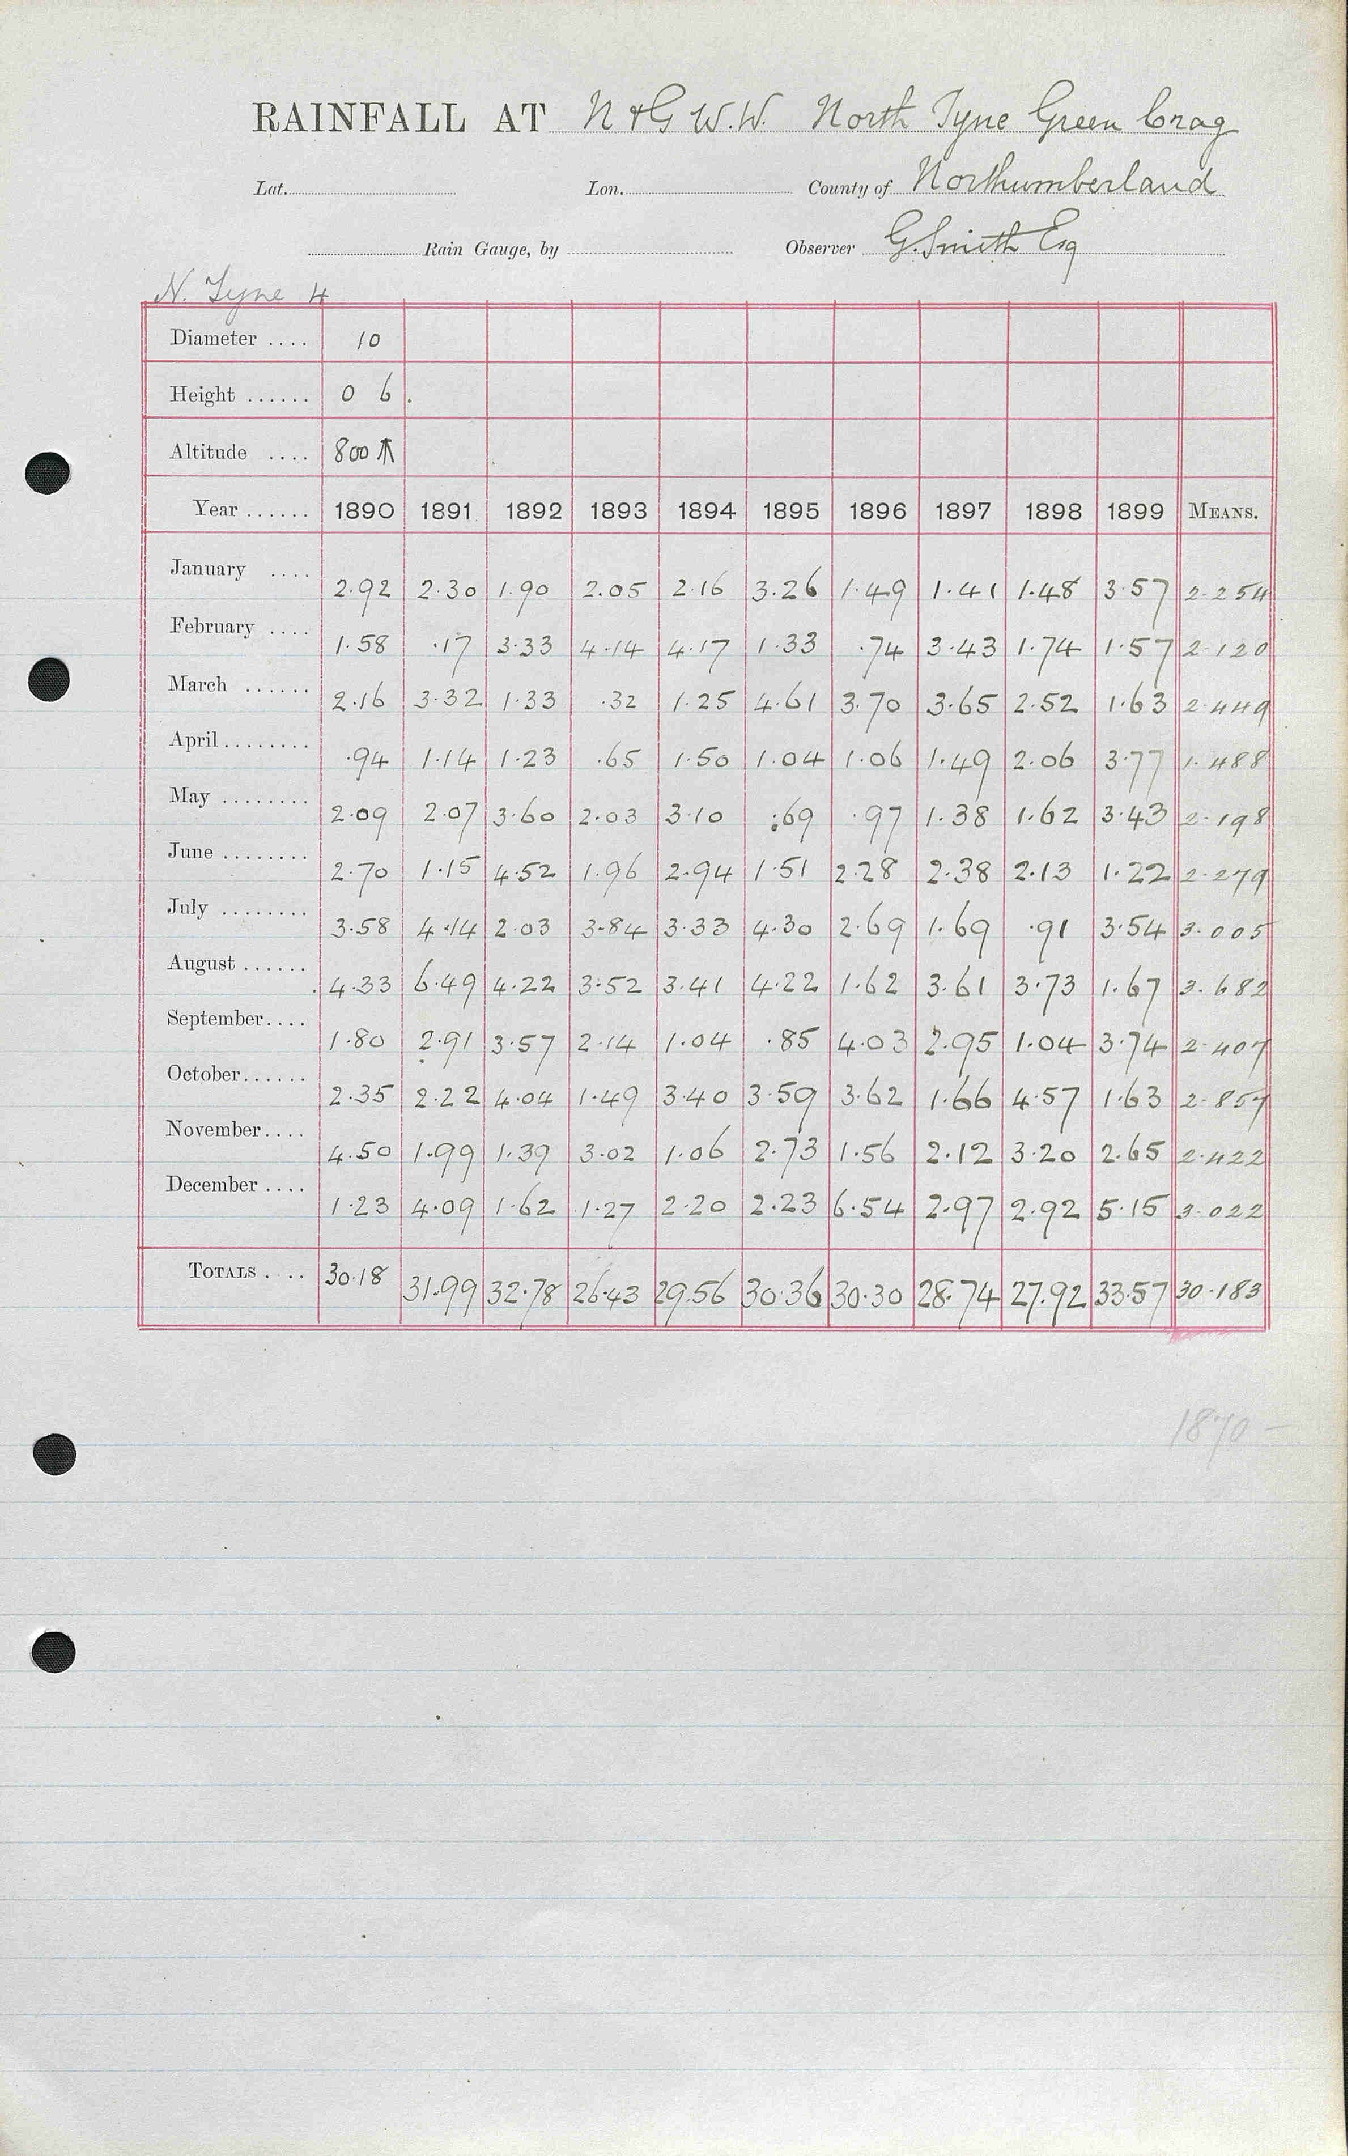 RAINFALL AT N & G W.W. North Tyne Green Crag
Lat. Lon. County of Northumberland
Rain Gauge, by Observer G. Smith Esq
N. Tyne 4
Diameter .... 10
Height ...... 0 6
Altitude .... 800 ↑
Year ...... 1890 1891 1892 1893 1894 1895 1896 1897 1898 1899 MEANS.
January .... 2.92 2.30 1.90 2.05 2.16 3.26 1.49 1.41 1.48 3.57 2.254
February .... 1.58 .17 3.33 4.14 4.17 1.33 .74 3.43 1.74 1.57 2.120
March ...... 2.16 3.32 1.33 .32 1.25 4.61 3.70 3.65 2.52 1.63 2.449
April ........ .94 1.14 1.23 .65 1.50 1.04 1.06 1.49 2.06 3.77 1.488
May ........ 2.09 2.07 3.60 2.03 3.10 .69 .97 1.38 1.62 3.43 2.198
June ........ 2.70 1.15 4.52 1.96 2.94 1.51 2.28 2.38 2.13 1.22 2.279
July ........ 3.58 4.14 2.03 3.84 3.33 4.30 2.69 1.69 .91 3.54 3.005
August ...... 4.33 6.49 4.22 3.52 3.41 4.22 1.62 3.61 3.73 1.67 3.682
September .... 1.80 2.91 3.57 2.14 1.04 .85 4.03 2.95 1.04 3.74 2.407
October ...... 2.35 2.22 4.04 1.49 3.40 3.59 3.62 1.66 4.57 1.63 2.857
November .... 4.50 1.99 1.39 3.02 1.06 2.73 1.56 2.12 3.20 2.65 2.422
December .... 1.23 4.09 1.62 1.27 2.20 2.23 6.54 2.97 2.92 5.15 3.022
TOTALS .... 30.18 31.99 32.78 26.43 29.56 30.36 30.30 28.74 27.92 33.57 30.183
1870 –